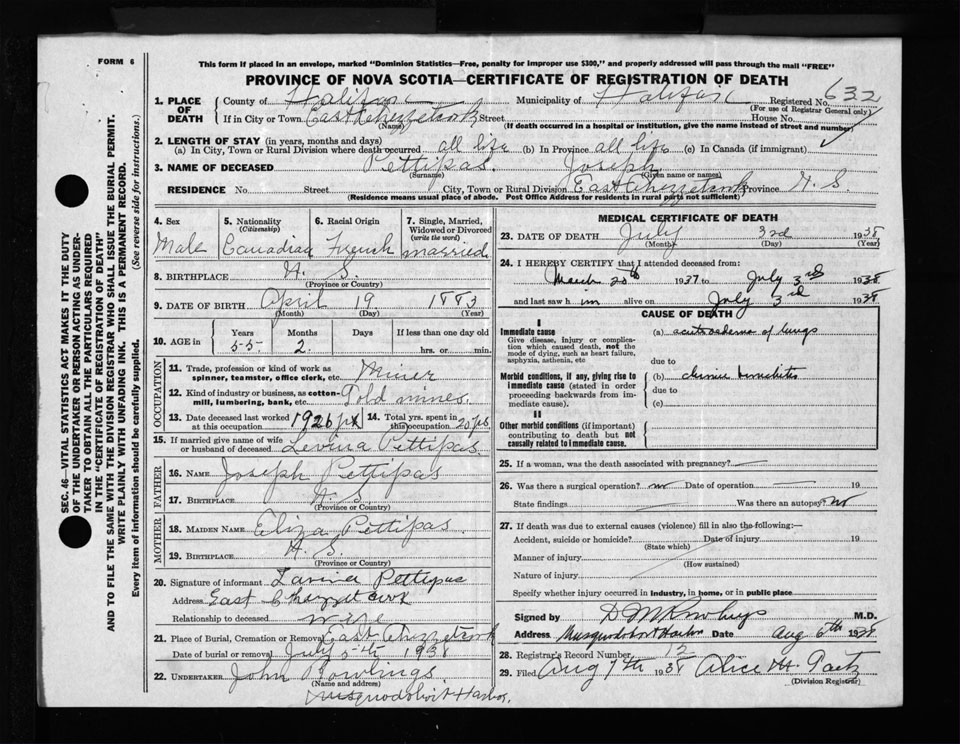 FORM 6
This form if placed in an envelope, marked "Dominion Statistics—Free, penalty for improper use $300," and properly addressed will pass through the mail "FREE"
PROVINCE OF NOVA SCOTIA—CERTIFICATE OF REGISTRATION OF DEATH
632
1. PLACE OF DEATH County of Halifax Municipality of Halifax Registered No.
(For use of Registrar General only)
If in City or Town East Chezzetcook Street House No.
(Name) (If death occurred in a hospital or institution, give the name instead of street and number)
2. LENGTH OF STAY (in years, months and days)
(a) In City, Town or Rural Division where death occurred all life (b) In Province all life (c) In Canada (if immigrant)
3. NAME OF DECEASED Pettipas. Joseph
(Surname) (Given name or names)
RESIDENCE No. Street City, Town or Rural Division East Chezzetcook Province N. S.
(Residence means usual place of abode. Post Office Address for residents in rural parts not sufficient)
SEC. 46—VITAL STATISTICS ACT MAKES IT THE DUTY
OF THE UNDERTAKER OR PERSON ACTING AS UNDER-
TAKER TO OBTAIN ALL THE PARTICULARS REQUIRED
IN THE "CERTIFICATE OF REGISTRATION OF DEATH"
AND TO FILE THE SAME WITH THE DIVISION REGISTRAR WHO SHALL ISSUE THE BURIAL PERMIT.
WRITE PLAINLY WITH UNFADING INK. THIS IS A PERMANENT RECORD.
Every item of information should be carefully supplied. (See reverse side for instructions.)
4. Sex 5. Nationality (Citizenship) 6. Racial Origin 7. Single, Married, Widowed or Divorced (write the word)
Male Canadian French married
8. BIRTHPLACE N. S.
(Province or Country)
9. DATE OF BIRTH April 19 1883
(Month) (Day) (Year)
10. AGE in Years Months Days If less than one day old
55 2. hrs. or min.
OCCUPATION
11. Trade, profession or kind of work as spinner, teamster, office clerk, etc. Miner
12. Kind of industry or business, as cotton-mill, lumbering, bank, etc. Gold mines.
13. Date deceased last worked at this occupation 1926 14. Total yrs. spent in this occupation 20
15. If married give name of wife or husband of deceased Levina Pettipas.
FATHER
16. NAME Joseph Pettipas
17. BIRTHPLACE N. S.
(Province or Country)
MOTHER
18. MAIDEN NAME Eliza Pettipas
19. BIRTHPLACE N. S.
(Province or Country)
20. Signature of informant Lavina Pettipas
Address East Chezzetcook
Relationship to deceased wife
21. Place of Burial, Cremation or Removal East Chezzetcook
Date of burial or removal July 5th 1938
22. UNDERTAKER John Rowlings.
(Name and address)
Musquodoboit Harbor.
MEDICAL CERTIFICATE OF DEATH
23. DATE OF DEATH July 3rd 1938
(Month) (Day) (Year)
24. I HEREBY CERTIFY that I attended deceased from:
March 20th 1937 to July 3rd 1938
and last saw him alive on July 3rd 1938
CAUSE OF DEATH
I
Immediate cause (a) acute oedema of lungs
Give disease, injury or complication which caused death, not the mode of dying, such as heart failure, asphyxia, asthenia, etc
due to
Morbid conditions, if any, giving rise to immediate cause (stated in order proceeding backwards from immediate cause). (b) chronic bronchitis
due to
(c)
II
Other morbid conditions (if important) contributing to death but not causally related to immediate cause.
25. If a woman, was the death associated with pregnancy? —
26. Was there a surgical operation? no Date of operation — 19
State findings Was there an autopsy? no
27. If death was due to external causes (violence) fill in also the following:—
Accident, suicide or homicide? Date of injury 19
(State which)
Manner of injury
(How sustained)
Nature of injury
Specify whether injury occurred in Industry, in home, or in public place
Signed by M.D.
Address Musquodoboit Harbor Date Aug 6th 1938
28. Registrar's Record Number 12
29. Filed Aug 7th 1938 Alice H
(Division Registrar)